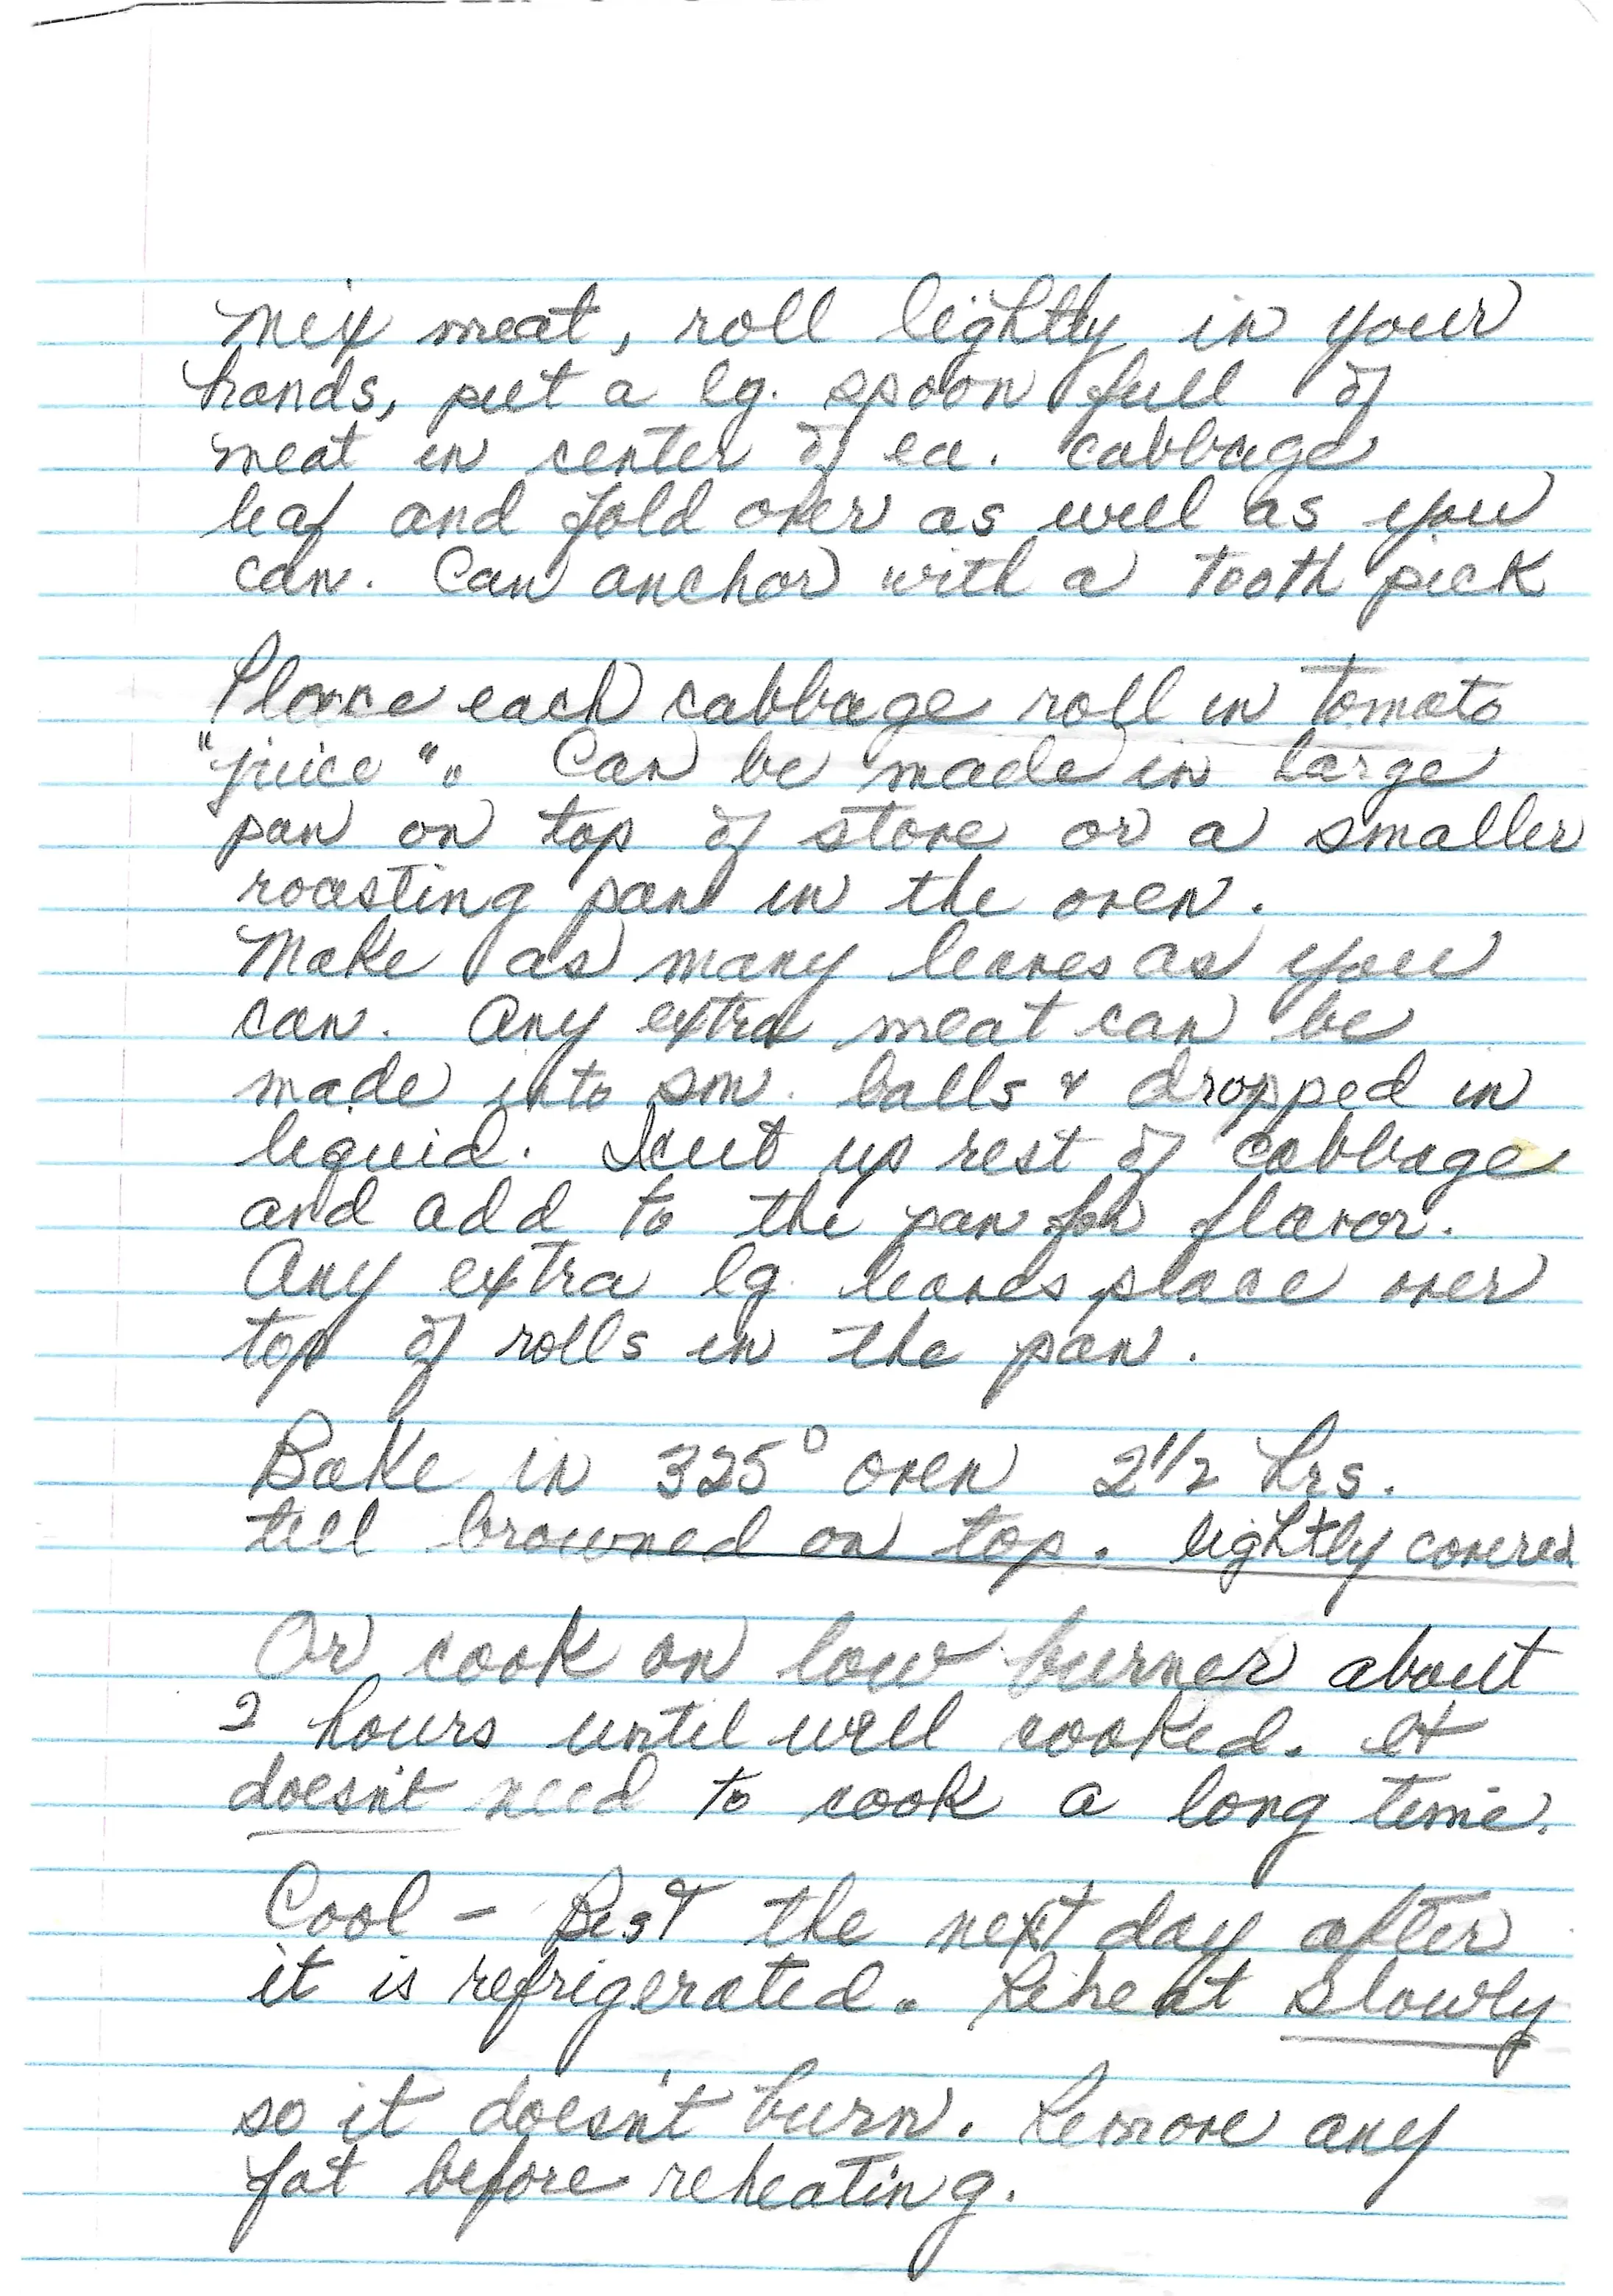 Mix meat, roll lightly in your
hands, put a lg. spoon full of
meat in center of ea. cabbage
leaf and fold over as well as you
can. Can anchor with a tooth pick
Place each cabbage roll in tomato
"juice". Can be made in large
pan on top of stove or a smaller
roasting pan in the oven.
Make as many leaves as you
can. Any extra meat can be
made into sm. balls & dropped in
liquid. I cut up rest of cabbage
and add to the pan for flavor.
Any extra lg. leaves place over
top of rolls in the pan.
Bake in 325° oven 2 1/2 hrs.
till browned on top. lightly covered
Or cook on low burner about
2 hours until well cooked. It
doesn't need to cook a long time.
Cool - Best the next day after
it is refrigerated. Reheat slowly
so it doesn't burn. Remove any
fat before reheating.